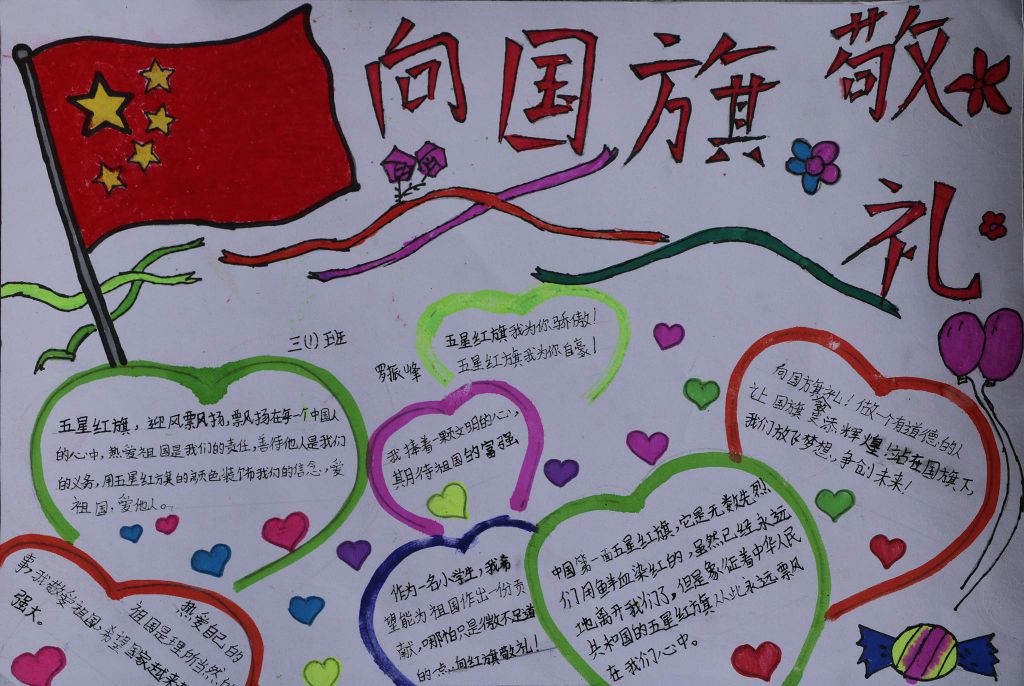 向国旗敬
礼
三(1)班
罗振峰
五星红旗我为你骄傲！
五星红旗我为你自豪！
五星红旗，迎风飘扬，飘扬在每一个中国人
的心中，热爱祖国是我们的责任，善待他人是我们
的义务，用五星红旗的颜色装饰我们的信念，爱
祖国，爱他人。
我捧着一颗文明的心，
期待祖国的富强
向国旗敬礼！做一个有道德的人
让国旗更添辉煌！站在国旗下，
我们放飞梦想，争创未来！
中国第一面五星红旗，它是无数先烈
们用鲜血染红的，虽然已经永远
地离开我们了，但是象征着中华人民
共和国的五星红旗从此永远飘风
在我们心中。
作为一名小学生，我希
望能为祖国作出一份贡
献，哪怕只是微不足道
的一点，向红旗敬礼！
热爱自己的
祖国是理所当然的
事，我敬爱祖国，希望国家越来
强大。